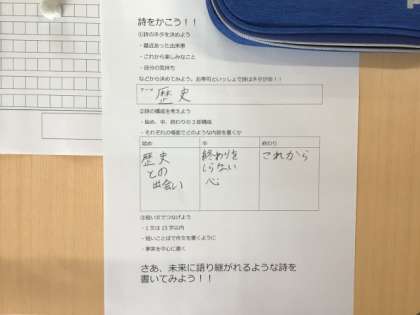 詩をかこう！！
①詩のネタを決めよう
・最近あった出来事
・これから楽しみなこと
・自分の気持ち
などから決めてみよう。お寿司といっしょで詩はネタが命！！
テーマ 歴史
②詩の構成を考えよう
・始め、中、終わりの3部構成
・それぞれの場面でどのような内容を書くか
始め 中 終わり
歴史との出会い 終わりをしらない心 これから
③短い文でつなげよう
・1文は15字以内
・短いことばで作文を書くように
・事実を中心に書く
さあ、未来に語り継がれるような詩を
書いてみよう！！